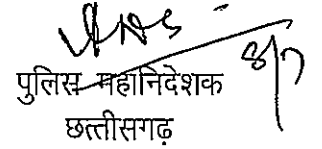 8/7
पुलिस महानिदेशक
छत्तीसगढ़